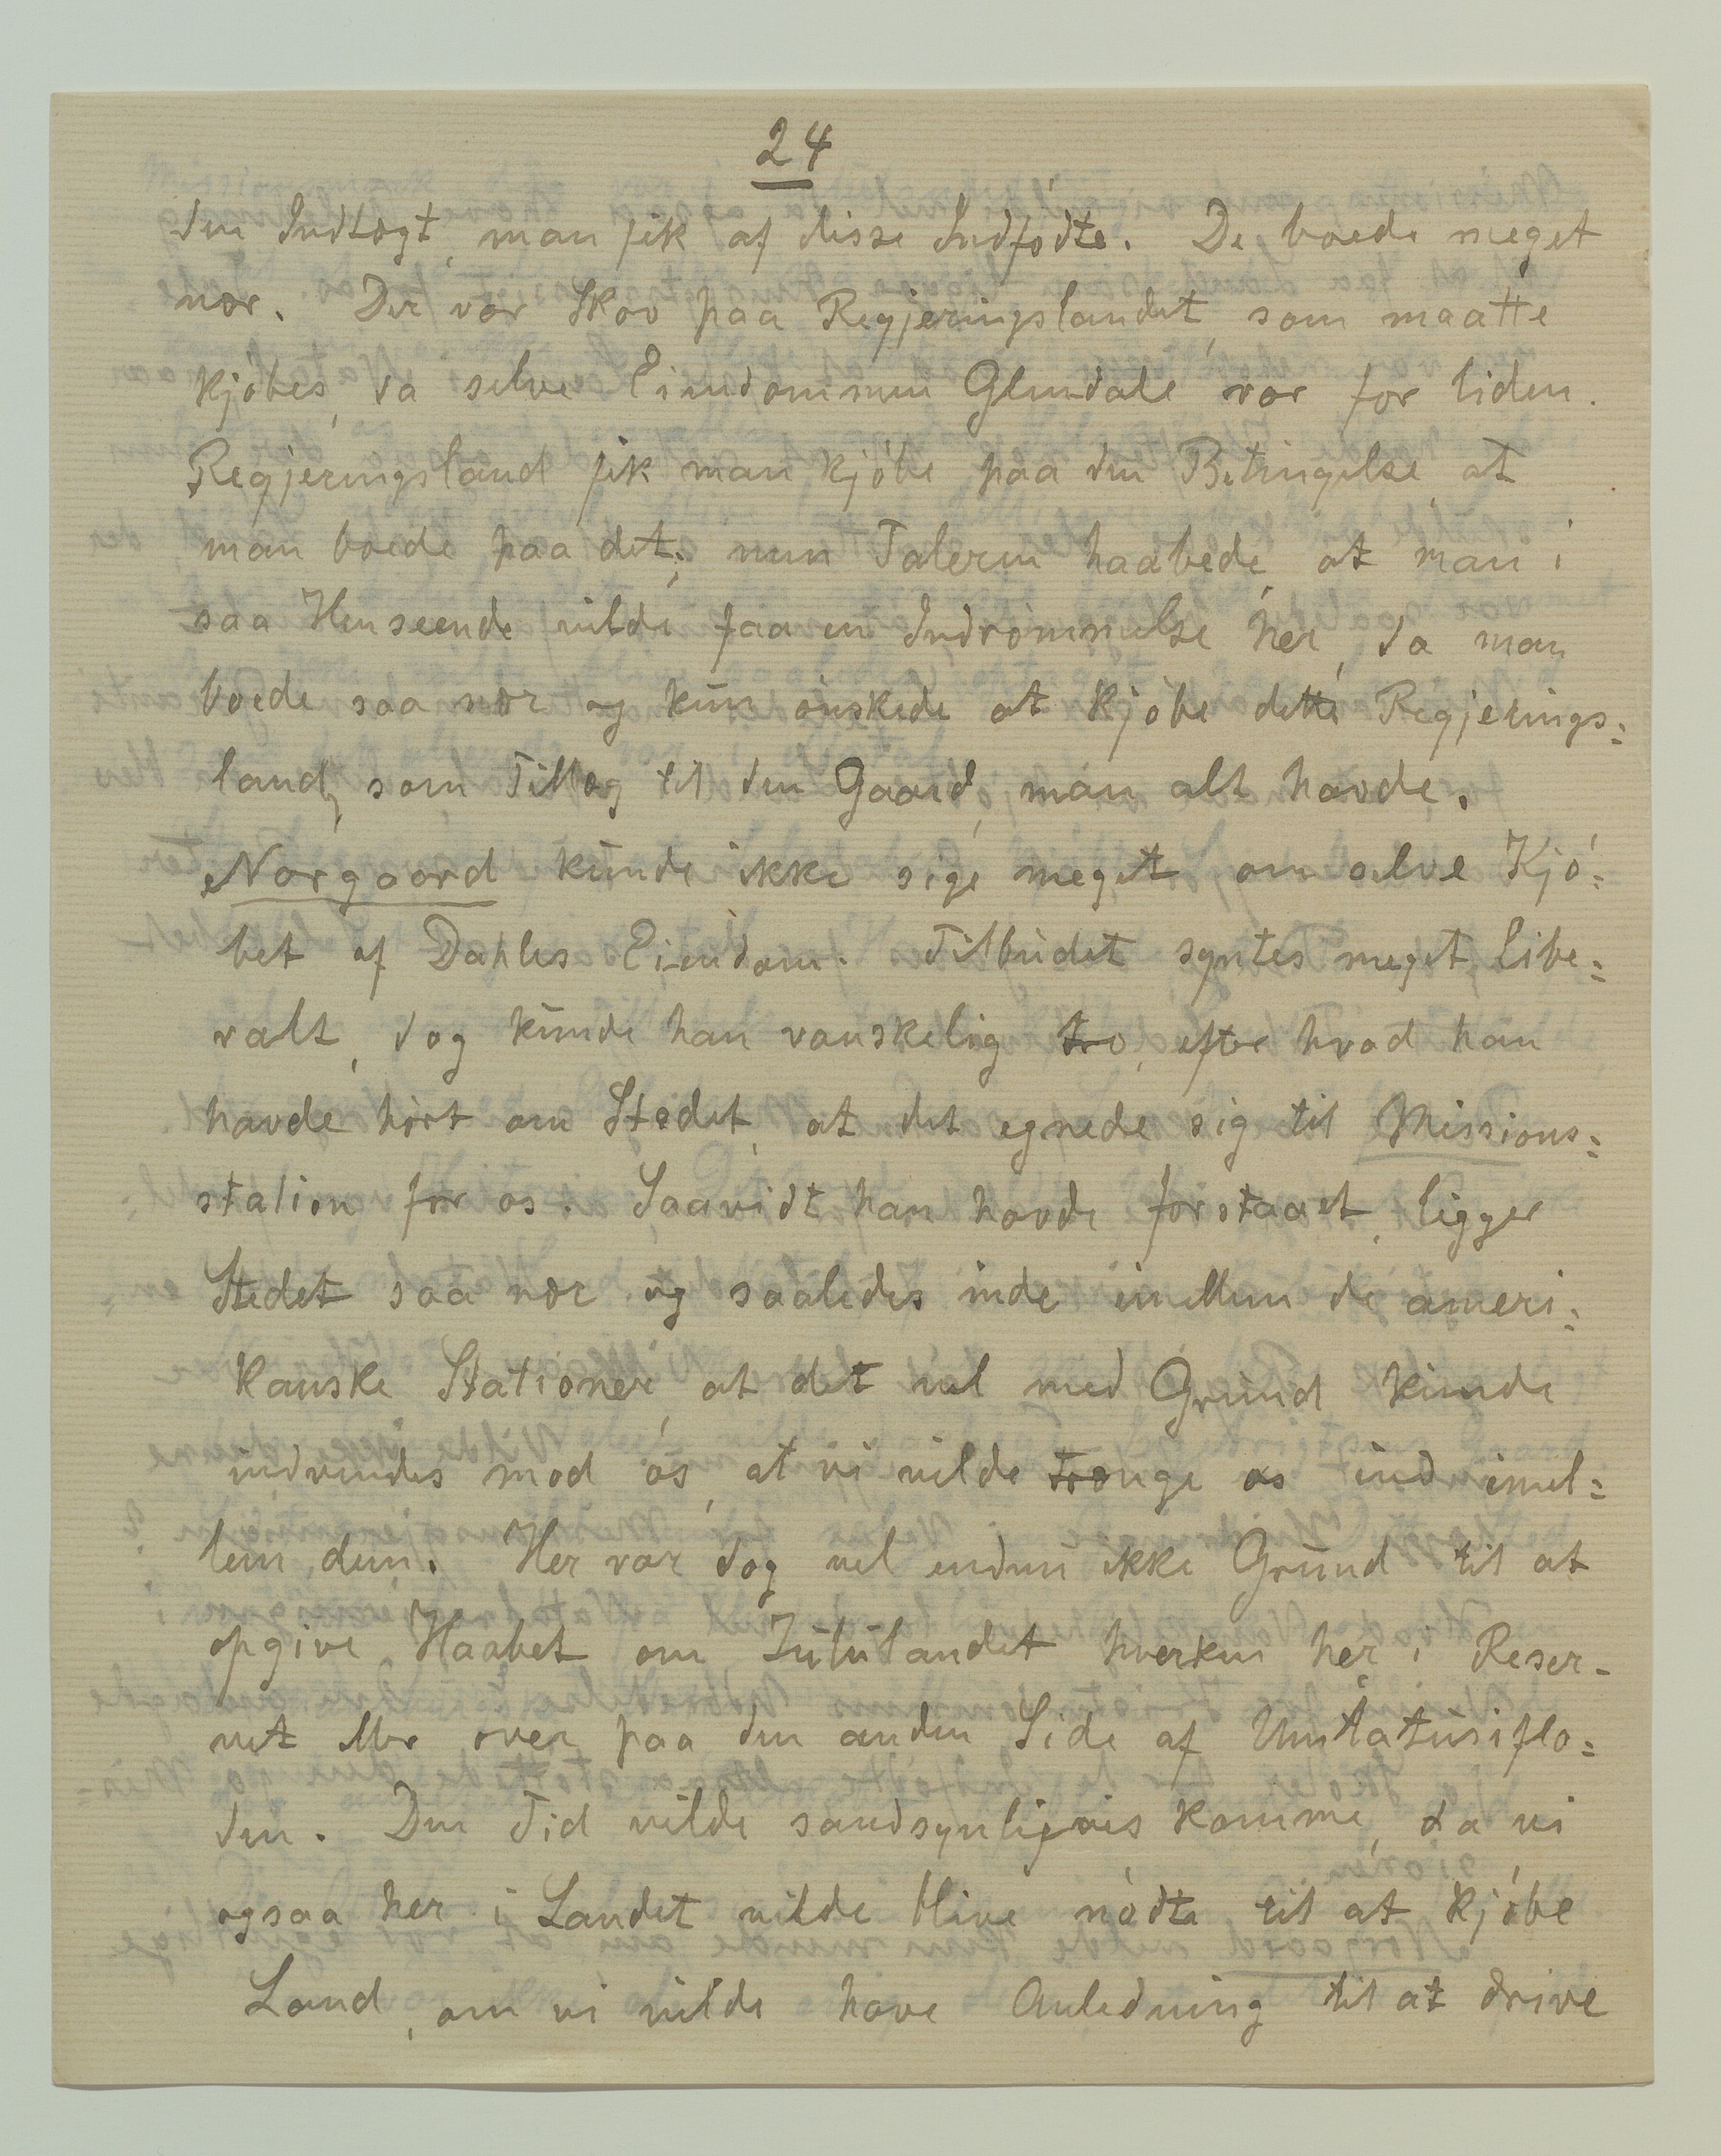 24
den Indtægt, man fik af disse Indfødte. De boede meget
nær. Der var Skov paa Regjeringslandet, som maatte
kjøbes, da selve Eiendommen Glendale var for liden.
Regjeringsland fik man kjøbe paa den Betingelse, at
man boede paa det; men Taleren haabede, at man i
saa Henseende vilde faa en Indrømmelse her, da man
boede saa nær og kun ønskede at kjøbe dette Regjerings=
land, som Tillæg til den Gaard, man alt havde.
Nørgaard kunde ikke sige meget om selve Kjø=
bet af Dahles Eiendom. Tilbudet syntes meget libe=
ralt, dog kunde han vanskelig tro, efter hvad han
havde hørt om Stedet, at det egnede sig til Missions=
station for os. Saavidt han havde forstaaet, ligger
Stedet saa nær og saaledes inde imellem de ameri=
kanske Stationer, at det vel med Grund kunde
indvendes mod os, at vi vilde trænge os ind imel=
lem dem. Her var dog vel endnu ikke Grund til at
opgive Haabet om Zululandet hverken her i Reser-
vet eller over paa den anden Side af Umlatusiflo=
den. Den Tid vilde sandsynligvis komme, da vi
ogsaa her i Landet vilde blive nødte til at kjøbe
Land, om vi vilde have Anledning til at drive